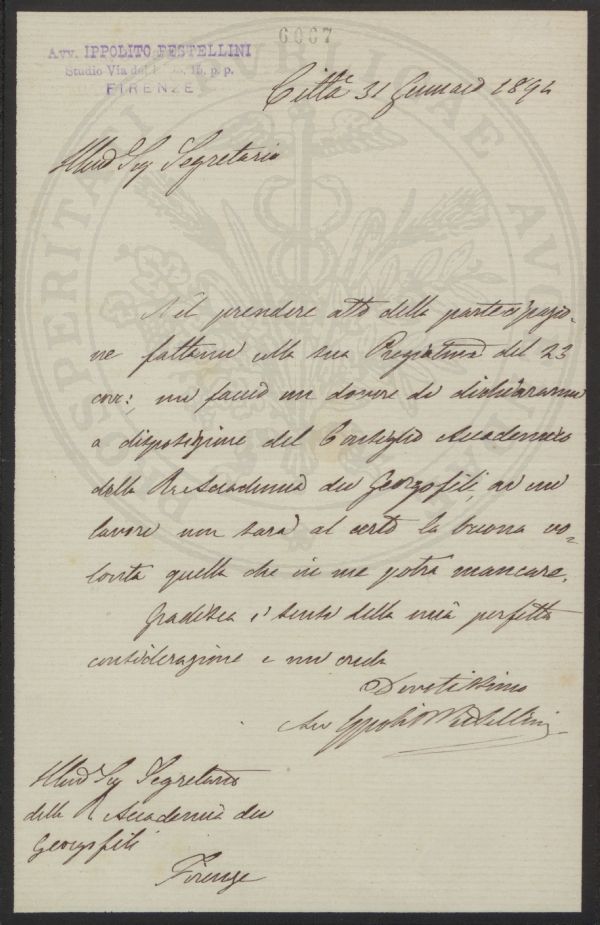 6007
Avv. IPPOLITO PESTELLINI
Studio Via 15, p. p.
FIRENZE
PROSPERITATI PUBLICAE AUGENDAE
Città 31 Gennaio 1894
Illmo Sig Segretario
Nel prendere atto della partecipazio-
ne fattami colla sua Pregiatma del 23
corr: mi faccio un dovere di dichiararmi
a disposizione del Consiglio Accademico
della R. Accademia dei Georgofili, ai cui
lavori non sarà al certo la buona vo-
lontà quella che in me potrà mancare.
Gradisca i sensi della mia perfetta
considerazione e mi creda
Devotissimo
Avv Ippolito Pestellini
Illmo Sig Segretario
della R Accademia dei
Georgofili
Firenze